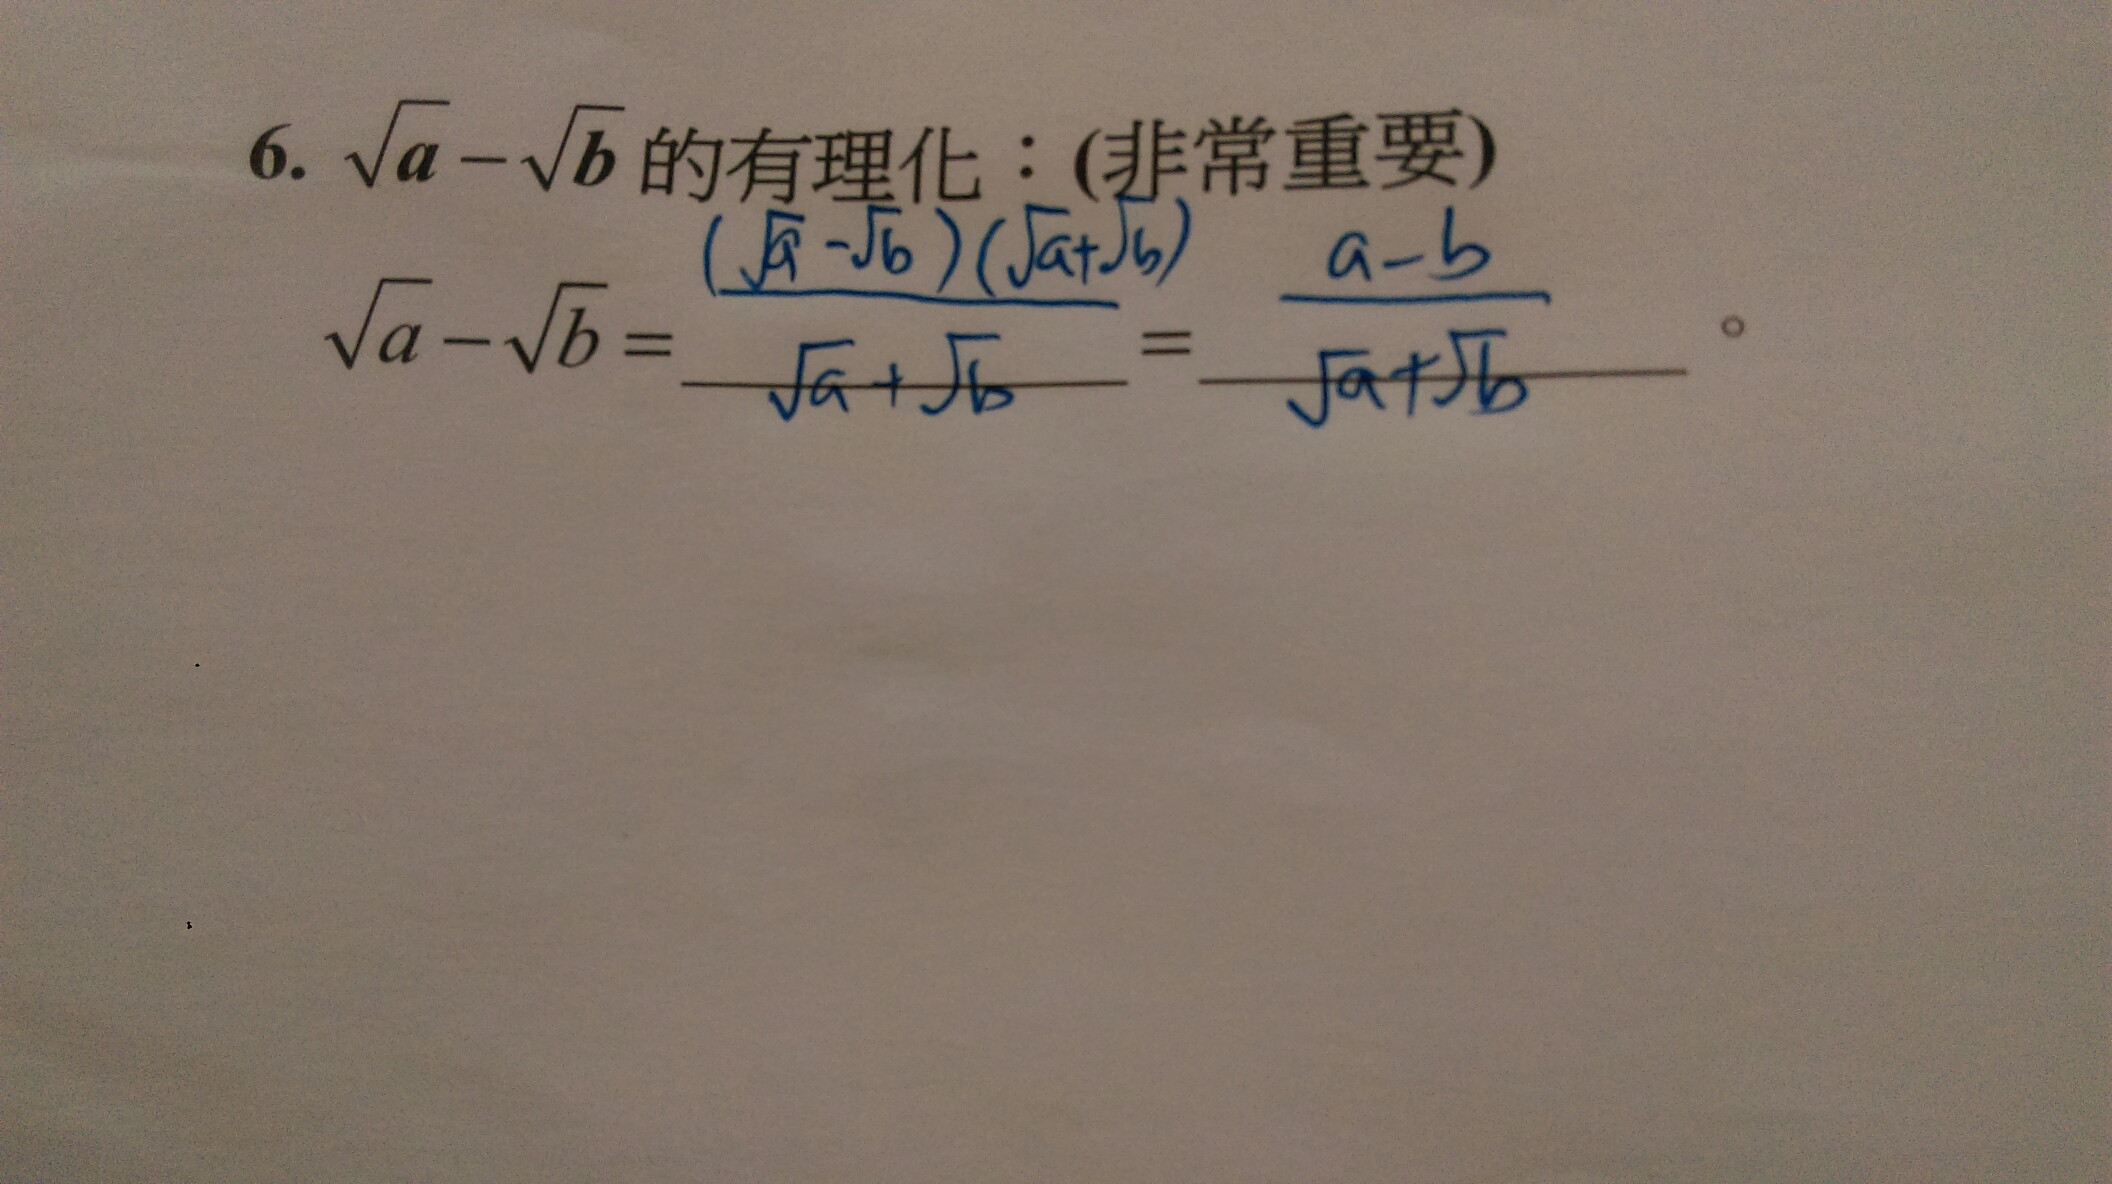 6. √a − √b 的有理化：(非常重要)
√a − √b = (√a − √b)(√a + √b) / √a + √b = a − b / √a + √b 。